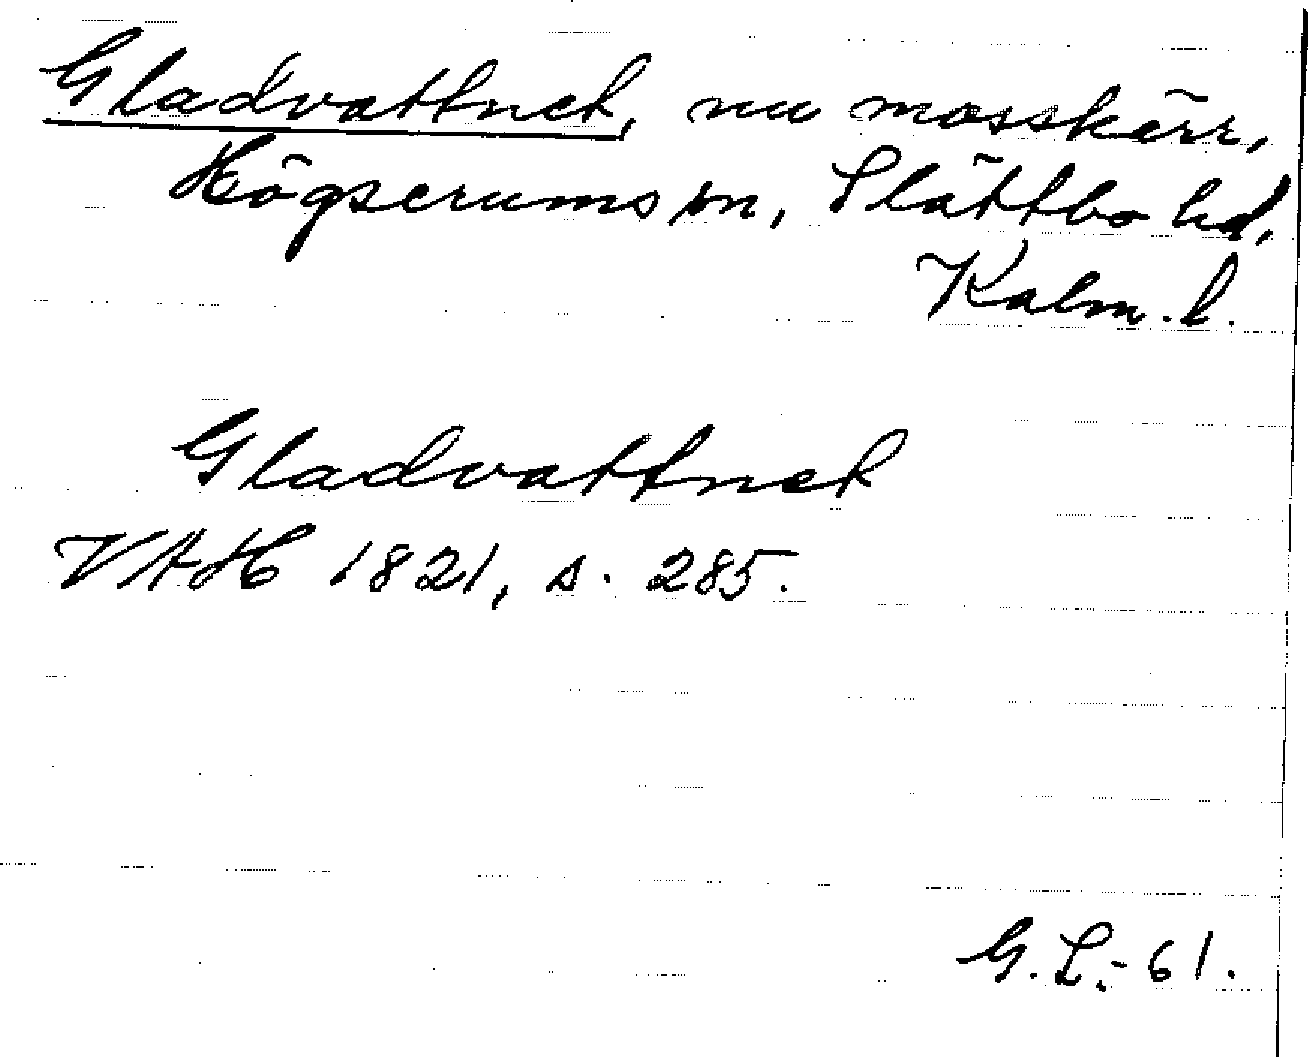 Gladvattnet, nu mosskärr,
Högserums sn, Slättbo hd,
Kalm. l.
Gladvattnet
VAH 1821, s. 285.
G. L. - 61.